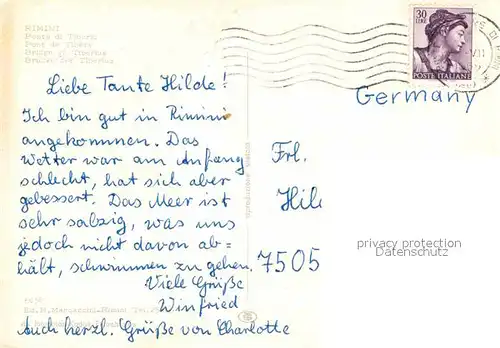 RIMINI
Ponte di Tiberio
Pont de Tibère
Bridge of Tiberius
Brücke des Tiberius
30
LIRE
POSTE ITALIANE
Liebe Tante Hilde!
Ich bin gut in Rimini
angekommen. Das
Wetter war am Anfang
schlecht, hat sich aber
gebessert. Das Meer ist
sehr salzig, was uns
jedoch nicht davon ab=
hält, schwimmen zu gehen.
Viele Grüße
Winfried
Auch herzl. Grüße von Charlotte
Germany
Frl.
Hil
7505
privacy protection
Datenschutz